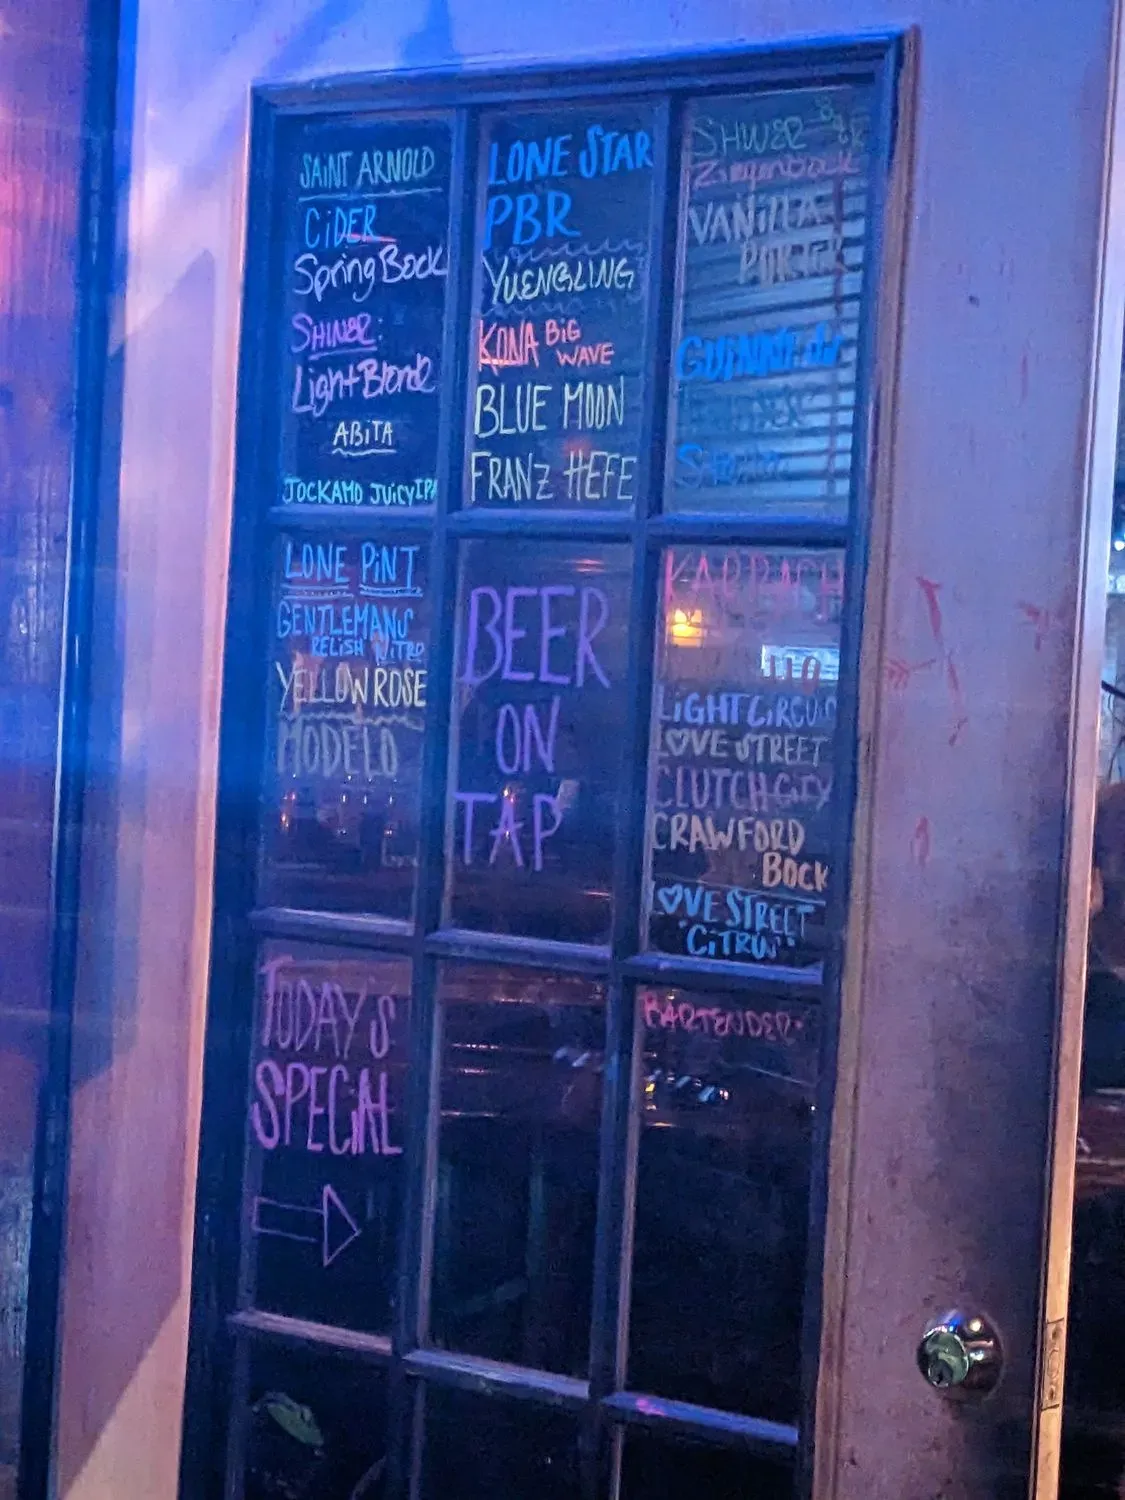 SAINT ARNOLD
CiDER
Spring Bock
SHiNER:
Light Blonde
ABiTA
JOCKAMO JUiCY IPA
LONE STAR
PBR
YUENGLING
KONA BiG
WAVE
BLUE MOON
FRANZ HEFE
VANiLLA
PORTER
LONE PiNT
GENTLEMANS
RELiSH NiTRO
YELLOW ROSE
MODELO
BEER
ON
TAP
KARBACH
LiGHT CiRCUS
LOVE STREET
CLUTCH CiTY
CRAWFORD
BOCK
LOVE STREET
"CiTRUS"
TODAY'S
SPECiAL
BARTENDER: